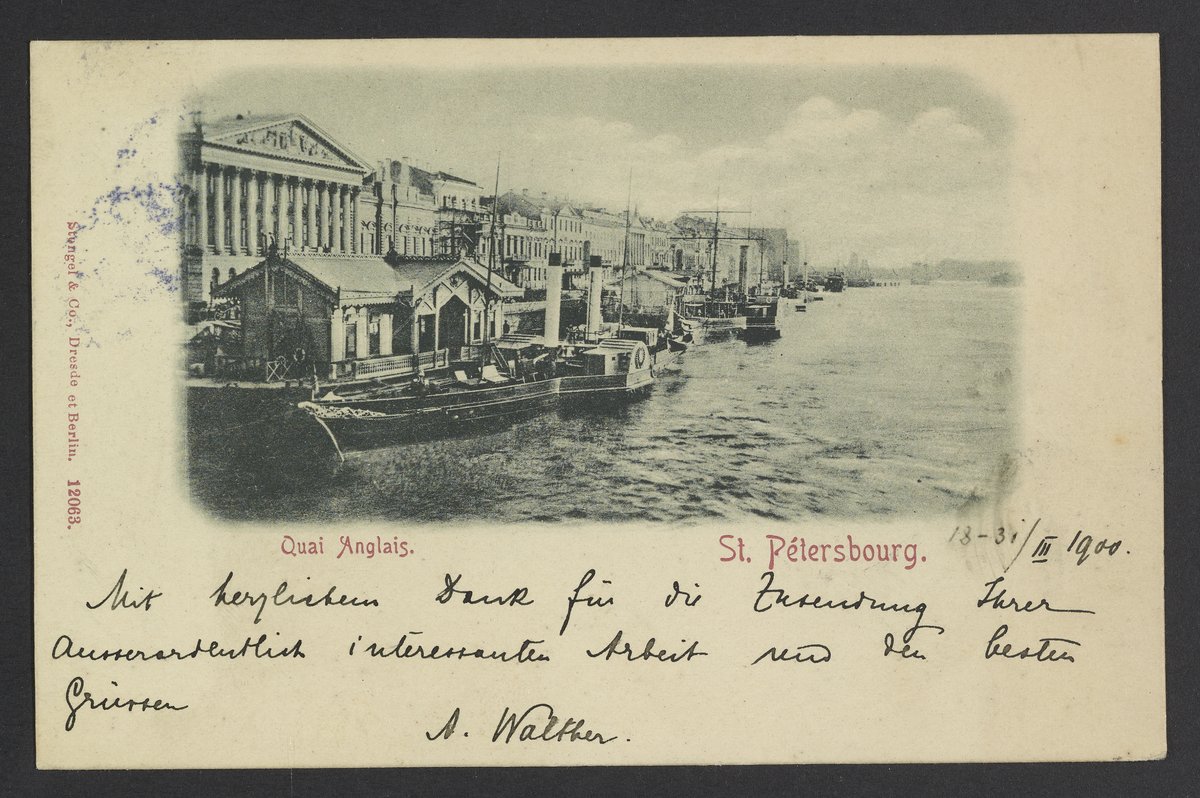 Stengel & Co., Dresde et Berlin. 12063.
Quai Anglais.
St. Pétersbourg.
18-31/III 1900.
Mit herzlichem Dank für die Zusendung Ihrer
Ausserordentlich interessanten Arbeit und den besten
Grüssen
A. Walther.